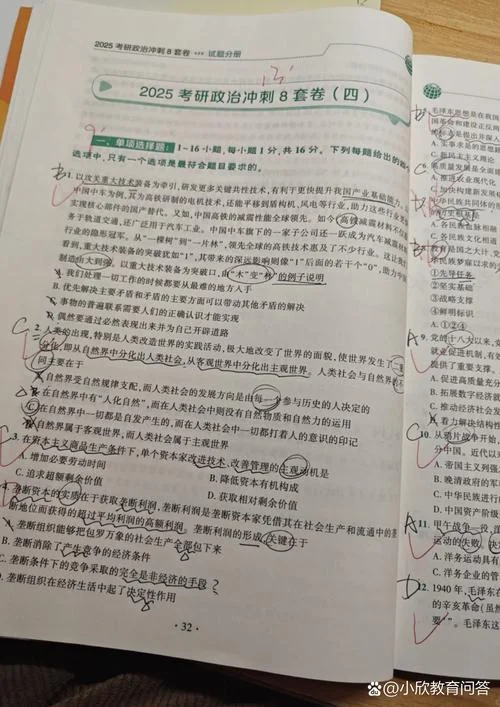 2025 考研政治冲刺 8 套卷 试题分册
2025 考研政治冲刺 8 套卷（四）
一、单项选择题：1~16 小题，每小题 1 分，共 16 分。下列每题给出的
选项中，只有一个选项是最符合题目要求的。
1. 以攻关重大技术装备为牵引，研发更多关键共性技术，有利于更快提升我国产业基础能力。
中国中车为例，其为高铁研制的电机技术，还能平移到盾构机、风电等行业，助力这些行业
实现核心部件的国产替代。又如，中国高铁的减震性能全球领先。如今高铁减震材料不仅
务于轨道交通，还广泛用于汽车工业。中国中车旗下的一家子公司还一跃成为汽车减震材
行业的隐形冠军。从“一棵树”到“一片林”，领先全球的高铁技术惠及了不少行业。这让我
看到，重大技术装备的突破就如“1”，其带来的深远影响则像“1”后面的若干个“0”，助力中
制造由大到强。以重大技术装备为突破口，由“木”变“林”的例子说明
A. 我们处理一切工作的时候都要从最难的地方入手
B. 优先解决主要矛盾和矛盾的主要方面可以带动其他矛盾的解决
C. 事物的普遍联系需要人们的正确认识才能实现
D. 偶然要通过必然表现出来并为自己开辟道路
2. 人类的出现，特别是人类改造世界的实践活动，极大地改变了世界的面貌，使世界发生了
分化，即从自然界中分化出人类社会，从客观世界中分化出主观世界。人类社会与自然界的不
同主要在于
A. 自然界受自然规律支配，而人类社会的发展方向是由每一个参与历史的人决定的
B. 在自然界中有“人化自然”，而在人类社会中则没有自然物质和自然力的运用
C. 在自然界中一切都是自发产生的，而在人类社会中一切都打着人的意识的印记
D. 自然界属于客观世界，而人类社会属于主观世界
3. 在资本主义商品生产条件下，单个资本家改进技术、改善管理的主观动机是
A. 增加必要劳动时间 B. 降低资本有机构成
C. 追求超额剩余价值 D. 获取相对剩余价值
4. 垄断资本的实质在于获取垄断利润，垄断利润是垄断资本家凭借其在社会生产和流通中的垄
断地位而获得的超过平均利润的高额利润。垄断利润的形成，关键在于
A. 垄断组织能够把包罗万象的社会生产全部包下来
B. 垄断消除了产生竞争的经济条件
C. 垄断条件下的竞争采取的完全是非经济的手段
D. 垄断组织在经济生活中起了决定性作用
· 32 ·
A. 实事求是的思想路
B. 新民主主义理论
A. 推进农业现代化
C. 加快构建新发展
A. 各民族血脉相融
C. 各民族文化相通
①先导任务
②坚实基础
③战略支撑
④鲜明标识
A. ①②④
9. 党的十八大以来，党
就业促进机制，有效
提供了重要支撑。
A. 促进高质量充分
B. 拓展数字经济就
C. 推动经济社会发
D. 着力解决结构性
10. 从鸦片战争开始
分中国。近代以
A. 帝国主义列强
B. 晚清政府的军
C. 中华民族进行
D. 中国资产阶级
11. 甲午战争一役，洋
运动的失败，决
A. 洋务运动具有
C. 洋务企业的管
12. 1940 年，毛泽东在
的辛亥革命(
要'”。毛泽东这
小欣教育问答